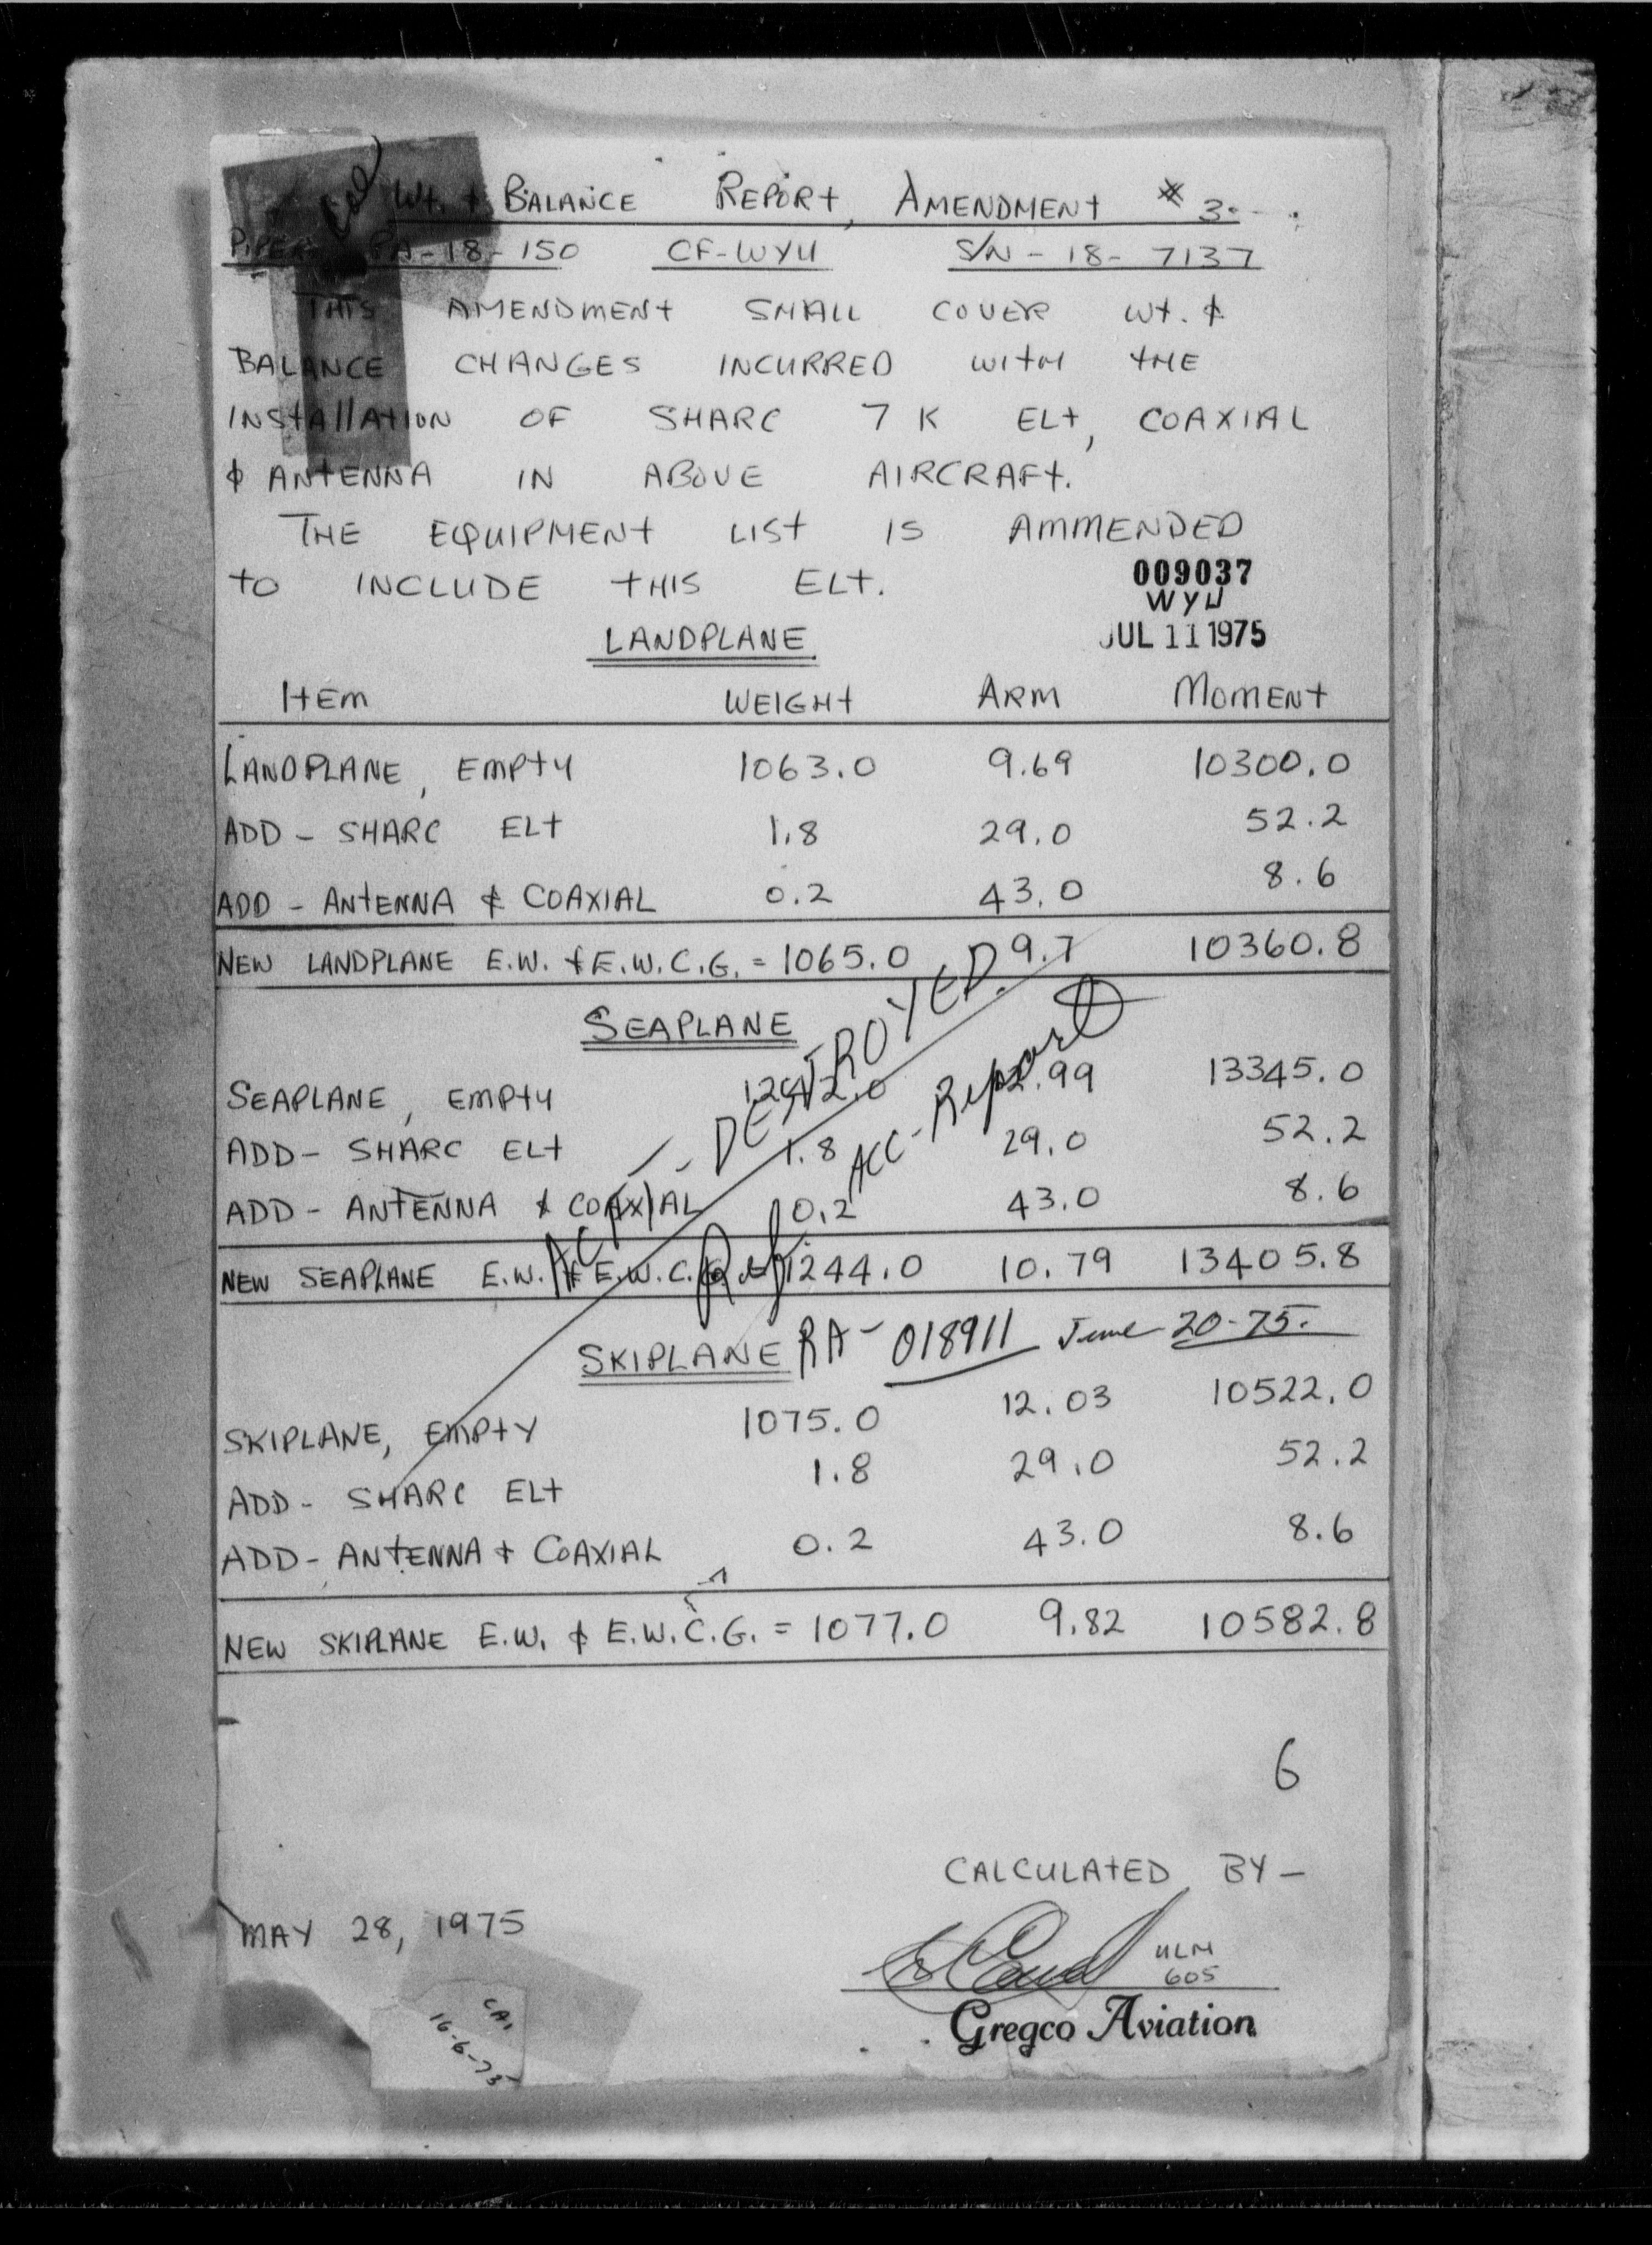 Wt. & BALANCE REPORT, AMENDMENT # 3.
PIPER PA-18-150 CF-WYU S/N - 18- 7137
THIS AMENDMENT SHALL COVER Wt. &
BALANCE CHANGES INCURRED WITH THE
INSTALLATION OF SHARC 7 K ELT, COAXIAL
& ANTENNA IN ABOVE AIRCRAFT.
THE EQUIPMENT LIST IS AMMENDED
TO INCLUDE THIS ELT.
009037
WYU
JUL 11 1975
LANDPLANE
ITEM WEIGHT ARM MOMENT
LANDPLANE, EMPTY 1063.0 9.69 10300.0
ADD - SHARC ELT 1.8 29.0 52.2
ADD - ANTENNA & COAXIAL 0.2 43.0 8.6
NEW LANDPLANE E.W. & E.W.C.G. = 1065.0 9.7 10360.8
SEAPLANE
SEAPLANE, EMPTY 1242.0 .99 13345.0
ADD - SHARC ELT 1.8 29.0 52.2
ADD - ANTENNA & COAXIAL 0.2 43.0 8.6
NEW SEAPLANE E.W. & E.W.C.G. = 1244.0 10.79 13405.8
DESTROYED.
Ref ACC - Report
RA - 018911 June 20-75.
SKIPLANE
SKIPLANE, EMPTY 1075.0 12.03 10522.0
ADD - SHARC ELT 1.8 29.0 52.2
ADD - ANTENNA + COAXIAL 0.2 43.0 8.6
NEW SKIPLANE E.W. & E.W.C.G. = 1077.0 9.82 10582.8
6
CALCULATED BY -
MAY 28, 1975
ULM
605
Gregco Aviation
CAI
16-6-75